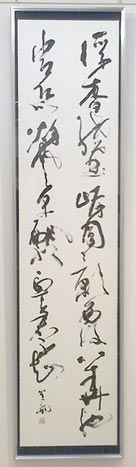 浮香繞曲岸圓影覆華池
常恐秋風早飄零君不知